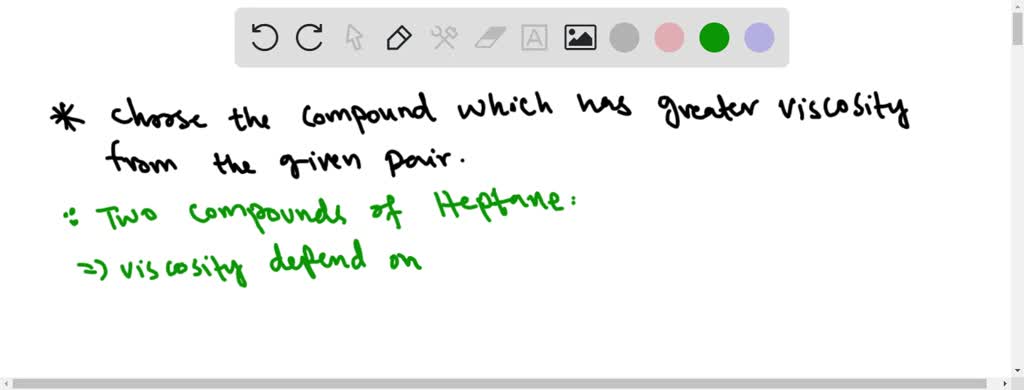 * choose the compound which has greater viscosity
from the given pair.
: Two compounds of Heptane:
=) viscosity depend on